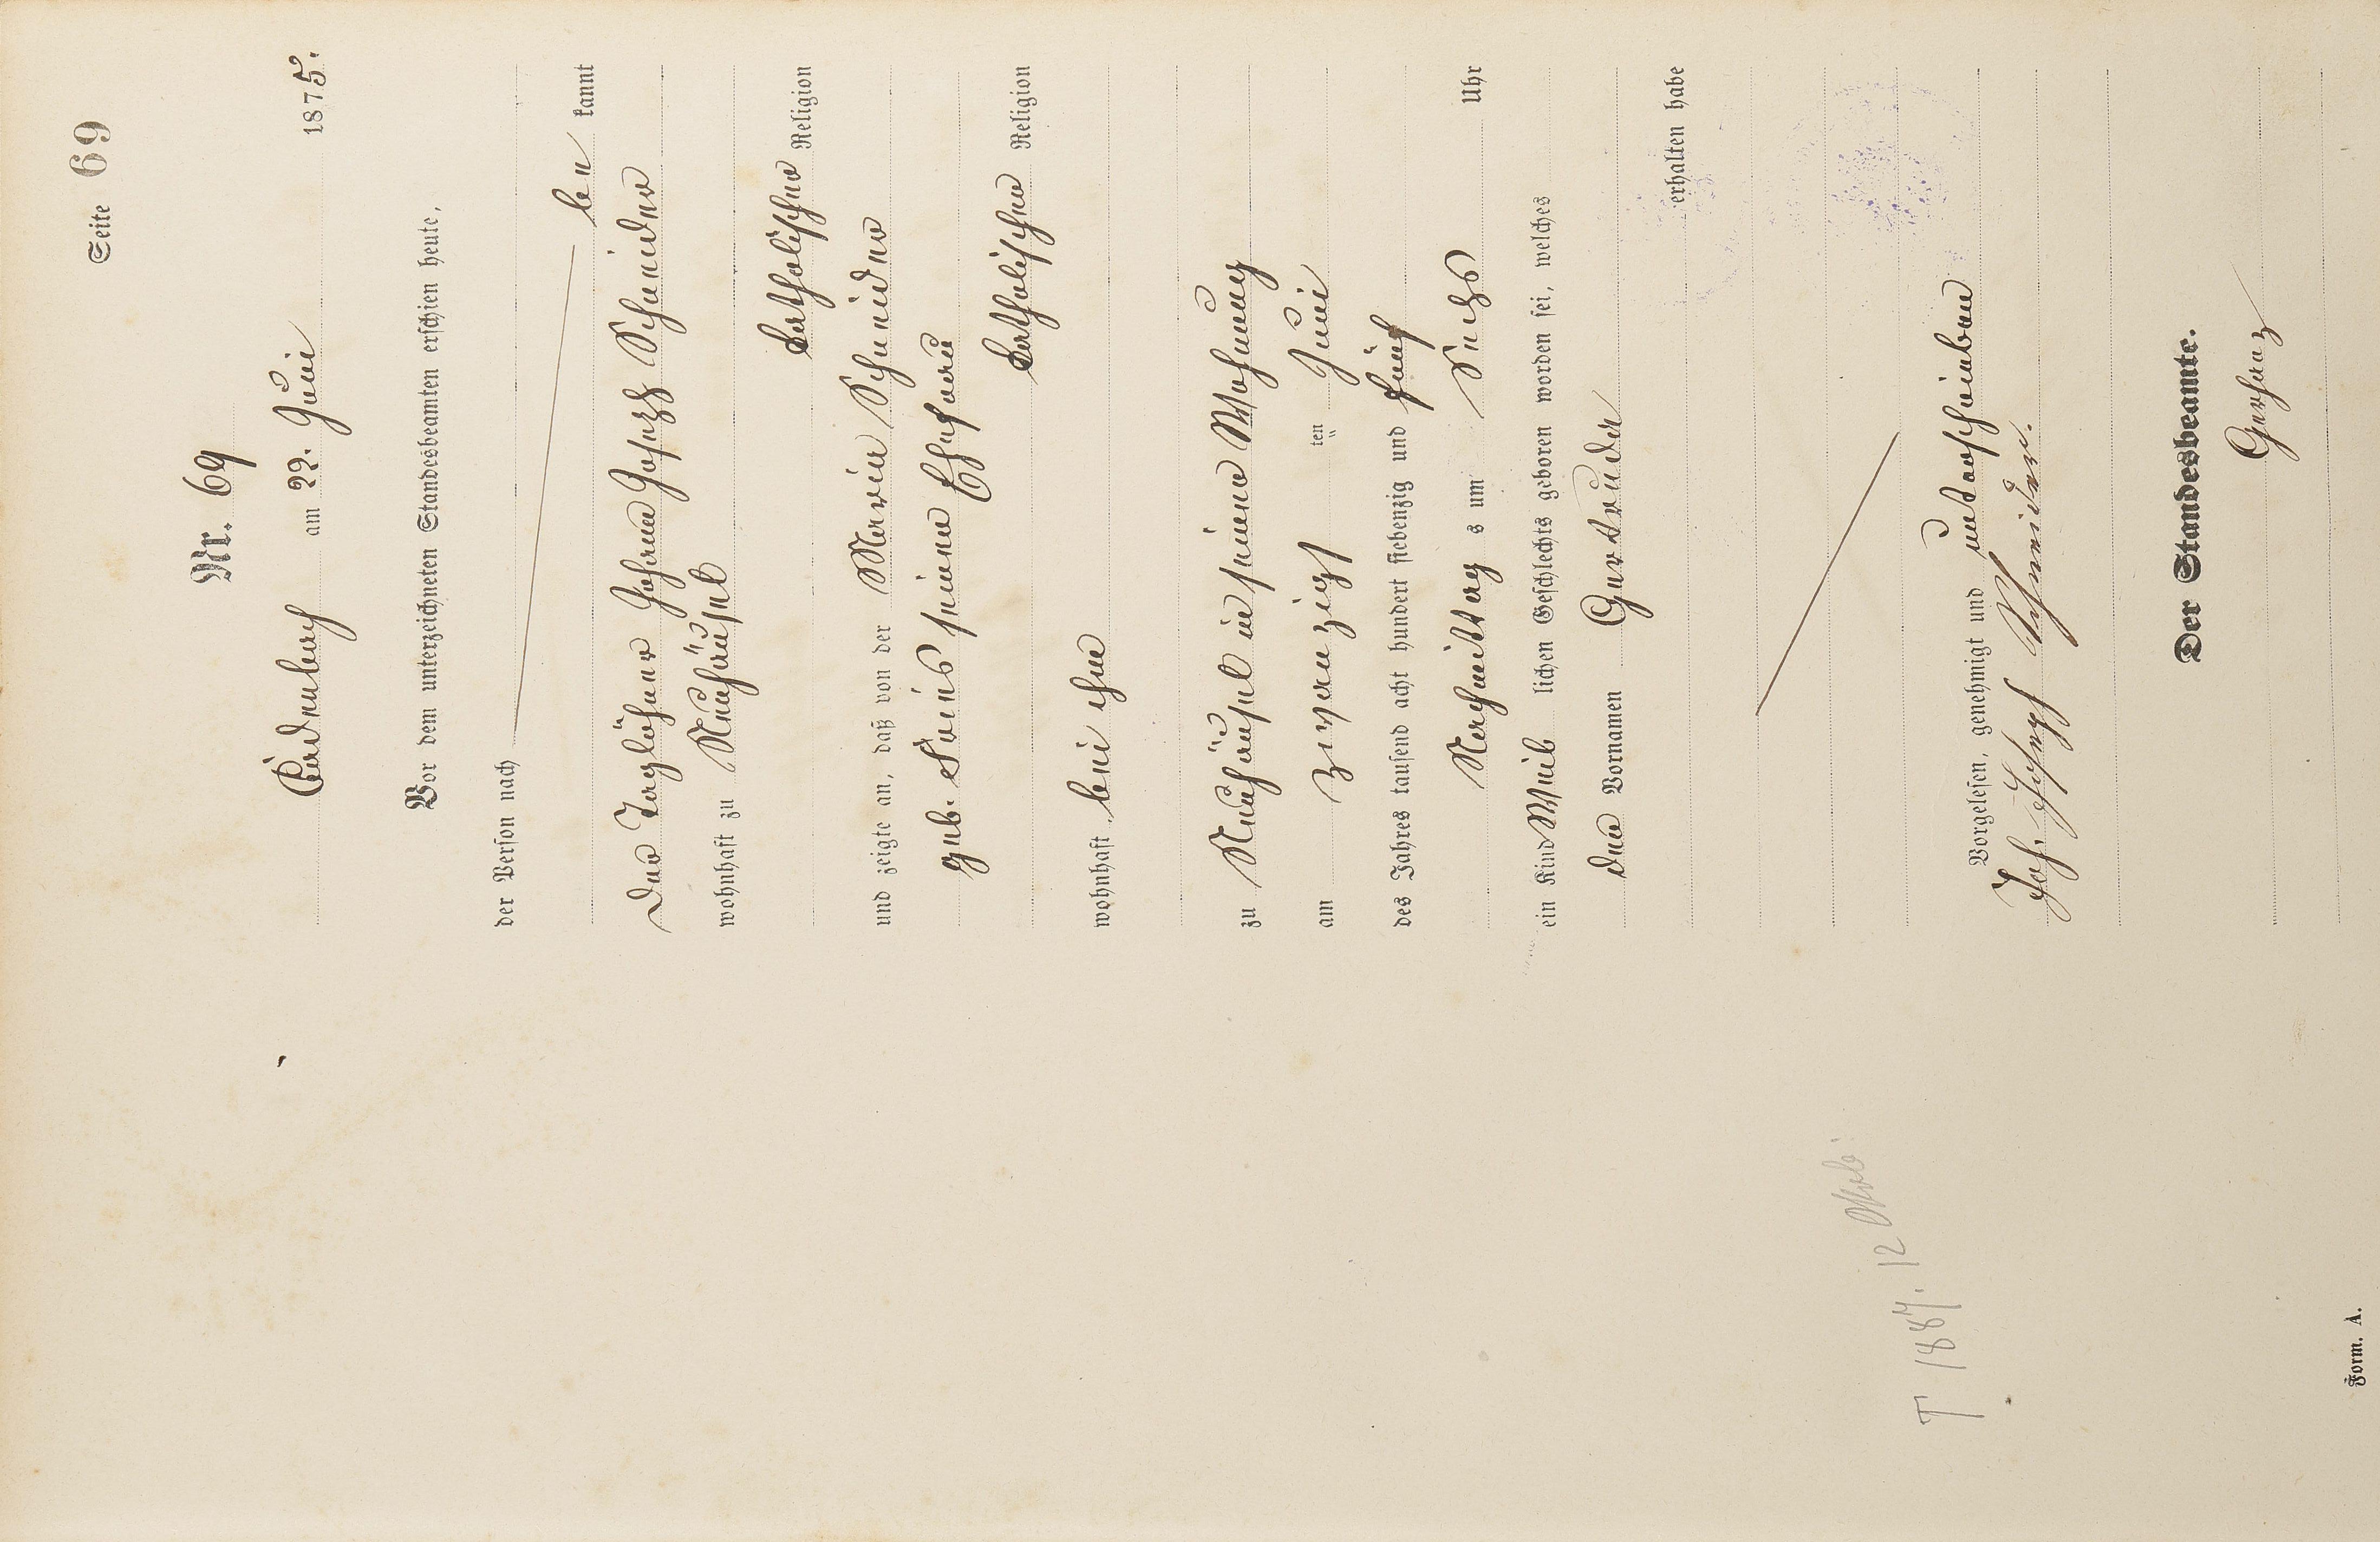 Seite 69
Nr. 69
Cadenbach am 22. Juni 1875.
Vor dem unterzeichneten Standesbeamten erschien heute,
der Person nach
bekannt
der Taglöhner Johann Joseph Schneider
wohnhaft zu Neuhäusel
katholischer Religion
und zeigte an, daß von der Maria Schneider
geb. seine Ehefrau
katholischer Religion
wohnhaft bei ihm
zu Neuhäusel in seiner Wohnung
am zwanzigsten Juni
des Jahres tausend acht hundert siebenzig und fünf
Nachmittags um sechs Uhr
ein Kind weiblichen Geschlechts geboren worden sei, welches
den Vornamen Gertruda
erhalten habe
Vorgelesen, genehmigt und unterschrieben
Joh. Joseph Schneider.
Der Standesbeamte.
T 1887. 12
Form. A.